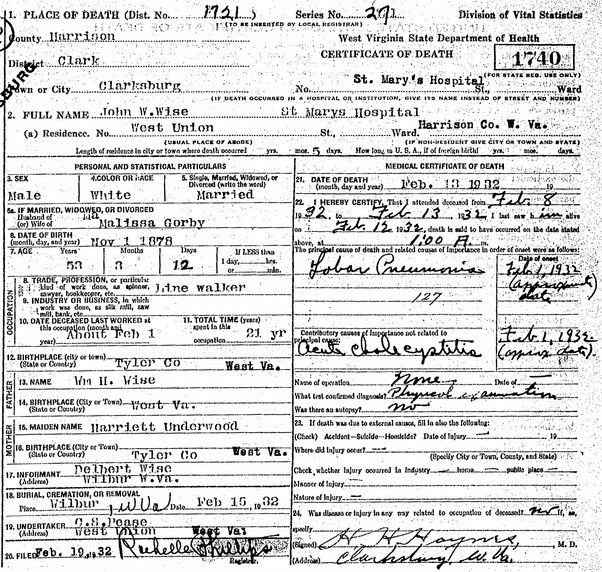 1. PLACE OF DEATH (Dist. No. 1721 ) Series No. 271 Division of Vital Statistics
(TO BE INSERTED BY LOCAL REGISTRAR)
County Harrison West Virginia State Department of Health
District Clark CERTIFICATE OF DEATH 1740
(FOR STATE REG. USE ONLY)
Town or City Clarksburg No. St. Mary's Hospital St., Ward
(IF DEATH OCCURRED IN A HOSPITAL OR INSTITUTION, GIVE ITS NAME INSTEAD OF STREET AND NUMBER)
2. FULL NAME John W.Wise St Marys Hospital
(a) Residence. No. West Union St., Ward. Harrison Co. W. Va.
(USUAL PLACE OF ABODE) (IF NON-RESIDENT GIVE CITY OR TOWN AND STATE)
Length of residence in city or town where death occurred yrs. mos. 5 days. How long in U. S. A., if of foreign birth? yrs. mos. days.
PERSONAL AND STATISTICAL PARTICULARS
3. SEX 4. COLOR OR RACE 5. Single, Married, Widowed, or Divorced (write the word)
Male White Married
5a. IF MARRIED, WIDOWED, OR DIVORCED
Husband of
(or) Wife of Malissa Gorby
6. DATE OF BIRTH
(month, day, and year) Nov 1 1878
7. AGE Years Months Days If LESS than
1 day, hrs.
or min.
53 3 12
OCCUPATION
8. TRADE, PROFESSION, or particular
kind of work done, as spinner,
sawyer, bookkeeper, etc. Line walker
9. INDUSTRY OR BUSINESS, in which
work was done, as silk mill, saw
mill, bank, etc.
10. DATE DECEASED LAST WORKED at
this occupation (month and
year) About Feb 1
11. TOTAL TIME (years)
spent in this
occupation 21 yr
12. BIRTHPLACE (city or town) Tyler Co
(State or County) West Va.
FATHER
13. NAME Wm H. Wise
14. BIRTHPLACE (City or Town)
(State or Country) West Va.
MOTHER
15. MAIDEN NAME Harriett Underwood
16. BIRTHPLACE (City or Town) Tyler Co West Va.
(State or Country)
17. INFORMANT Delbert Wise
(Address) Wilbur W.Va.
18. BURIAL, CREMATION, OR REMOVAL
Place Wilbur W Va Date Feb 15 ,1932
19. UNDERTAKER C.S.Pease
(Address) West Union West Va.
20. FILED Feb. 19, 1932 Rochelle Phillips
Registrar.
MEDICAL CERTIFICATE OF DEATH
21. DATE OF DEATH
(month, day and year) Feb. 13 1932 19
22. I HEREBY CERTIFY, That I attended deceased from Feb 8
1932, to Feb 13, 1932 I last saw him alive
on Feb 12 1932 death is said to have occurred on the date stated
above, at 1:00 A m.
The principal cause of death and related causes of importance in order of onset were as follows:
Date of onset
Lobar Pneumonia Feb 1, 1932
(approx date)
127
Contributory causes of importance not related to
principal cause:
Acute cholecystitis Feb 1, 1932
(approx date).
Name of operation None Date of
What test confirmed diagnosis? Physical examination
Was there an autopsy? no
23. If death was due to external causes, fill in also the following:
(Check) Accident—Suicide—Homicide? Date of injury 19
Where did injury occur?
(Specify City or Town, County, and State)
Check whether injury occurred in industry home public place
Manner of injury
Nature of injury
24. Was disease or injury in any way related to occupation of deceased? no If, so,
specify
(Signed) H H Haynes, M. D.
(Address) Clarksburg, W. Va.